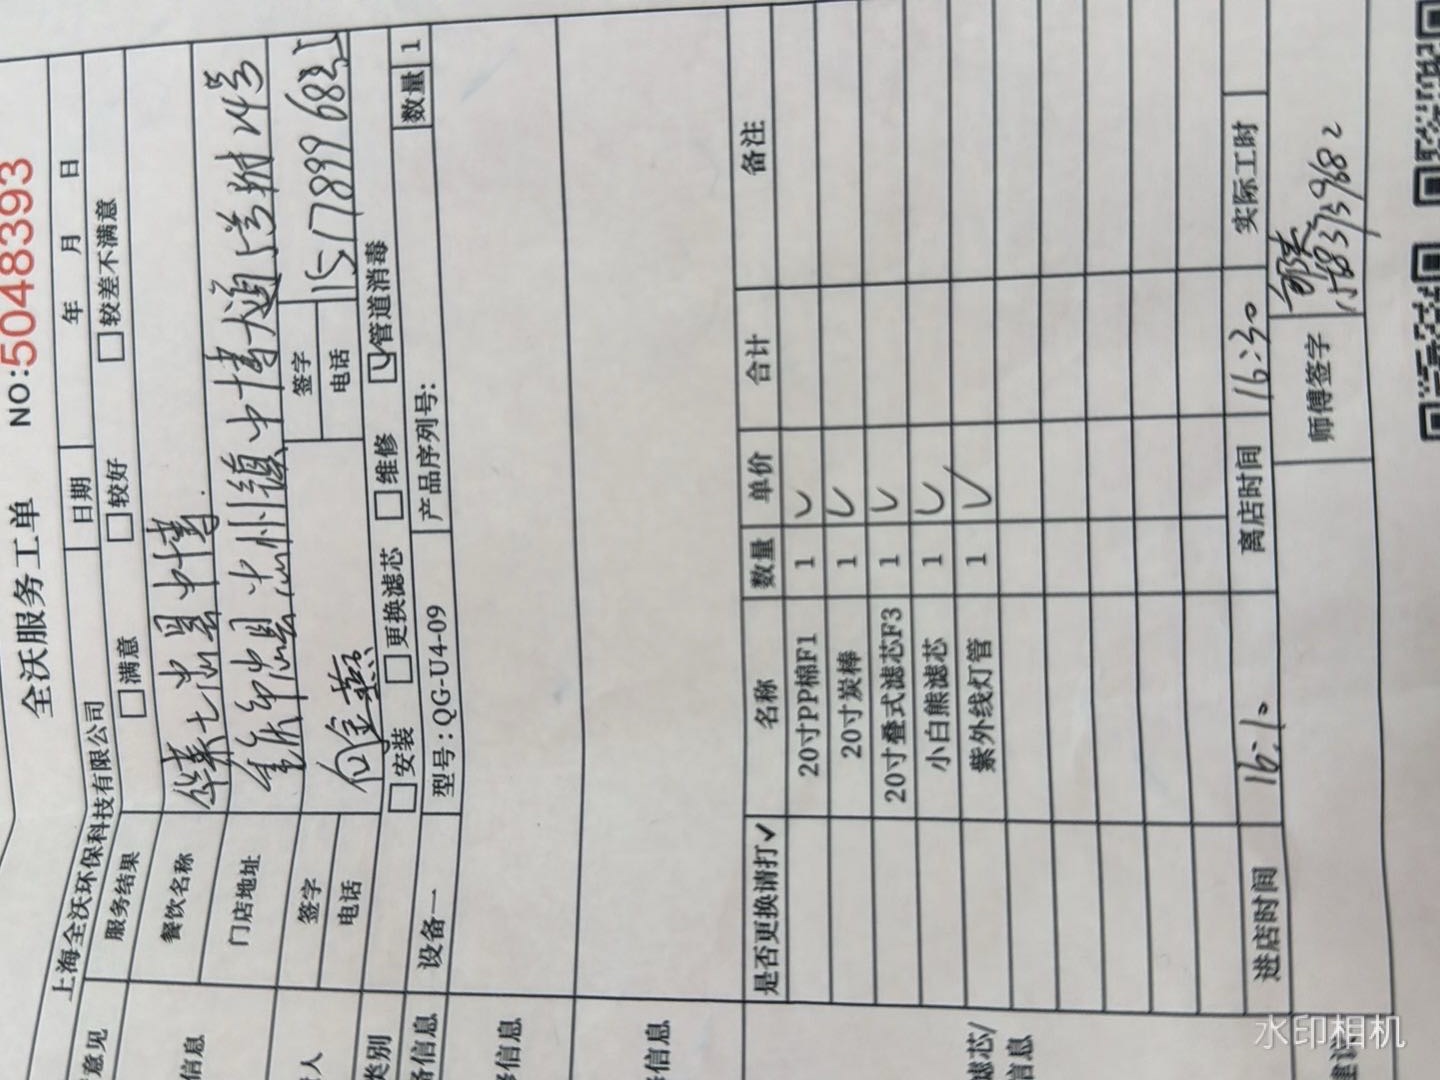 全沃服务工单 NO:5048393
上海全沃环保科技有限公司 日期 年 月 日
意见 服务结果 满意 较好 较差不满意
信息 餐饮名称 华莱士忠县中博
门店地址 重庆市忠县忠州镇中博大道
人 签字 向金燕 签字
电话 电话
类别 安装 更换滤芯 维修 管道消毒
备信息 设备一 型号:QG-U4-09 产品序列号: 数量 1
信息
信息
滤芯/
信息
是否更换请打✓ 名称 数量 单价 合计 备注
20寸PP棉F1 1 ✓
20寸炭棒 1 ✓
20寸叠式滤芯F3 1 ✓
小白熊滤芯 1 ✓
紫外线灯管 1 ✓
进店时间 16:10 离店时间 16:30 实际工时
师傅签字
水印相机